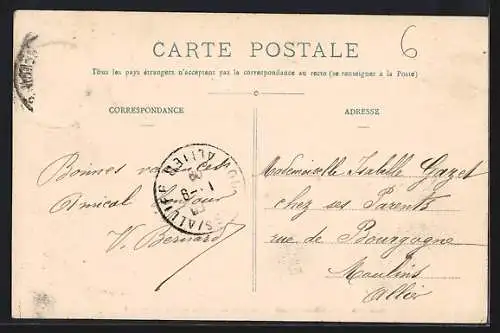 6
CARTE POSTALE
Tous les pays étrangers n'acceptent pas la correspondance au recto (se renseigner à la Poste)
CORRESPONDANCE
ADRESSE
Bonnes
Amical bonjour
V. Bernard
ALLIER
Mademoiselle Isabelle Gazet
chez ses Parents
rue de Bourgogne
Moulins
Allier